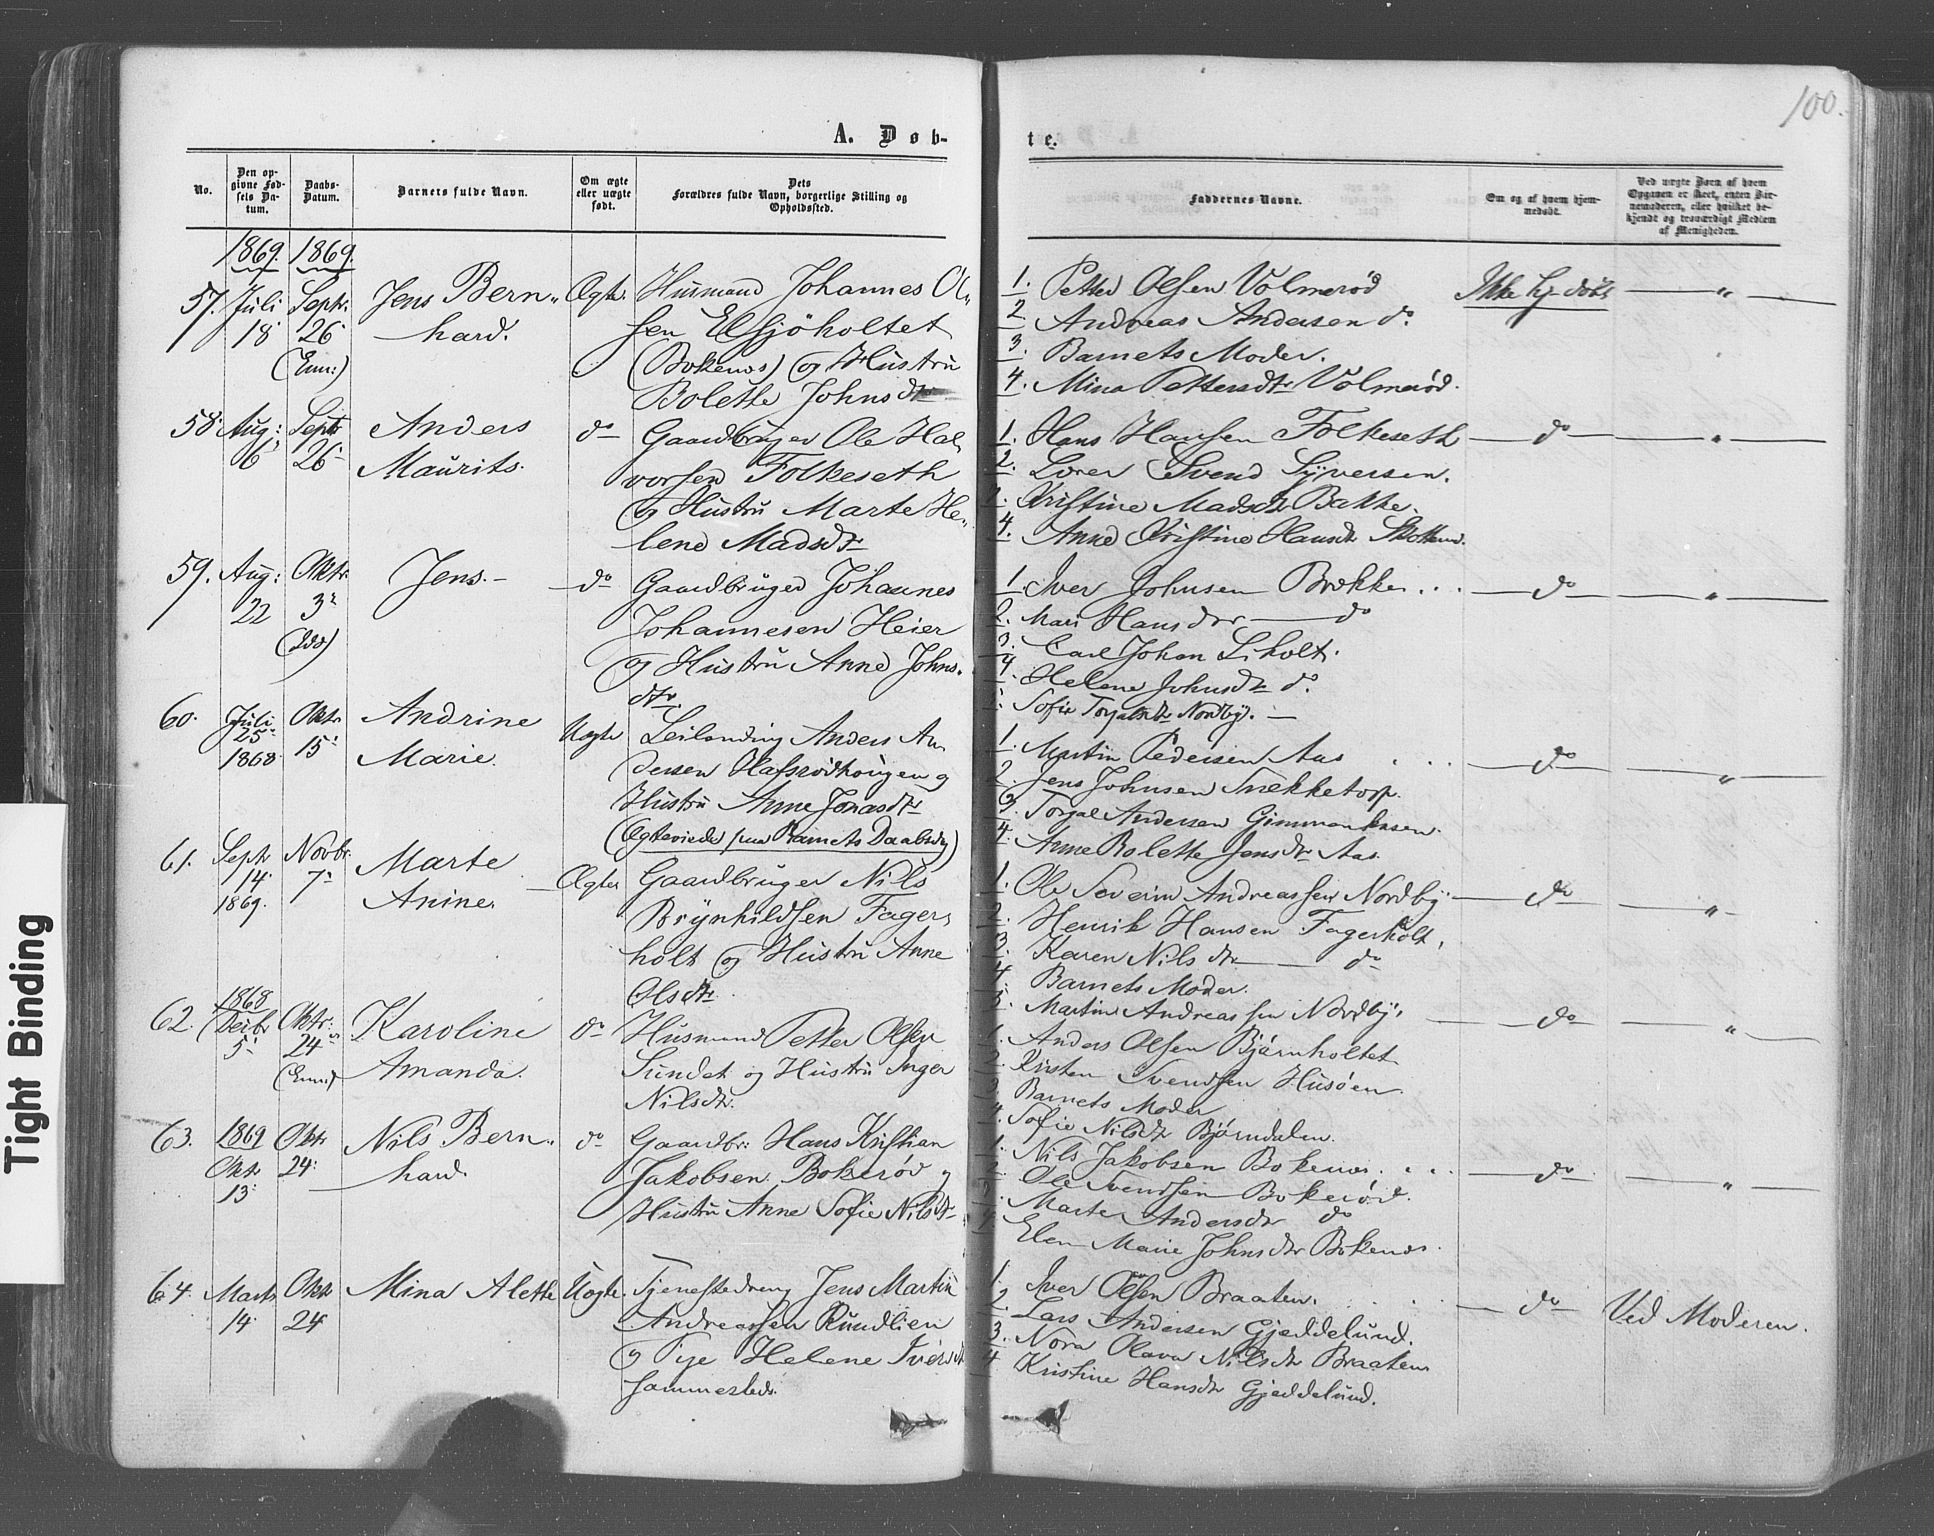 100.
A. Døb-
te.
No.
Den op-
givne Fød-
sels Da-
tum.
Daabs-
Datum.
Barnets fulde Navn.
Om ægte
eller uægte
født.
Dets
Forældres fulde Navn, borgerlige Stilling og
Opholdssted.
Faddernes Navne.
Om og af hvem hjem-
medøbt.
Ved uægte Børn af hvem
Opgaven er skeet, enten Bar-
nemoderen, eller hvilket be-
kjendt og troværdigt Medlem
af Menigheden.
1869. 1869.
57.
Juli
18
Septr.
26
(Enn:)
Jens Bern-
hard.
Ægte.
Husmand Johannes Ol-
sen Elsjöholtet
(Bokenes) og Hustru
Bolette Johnsdtr
1. Petter Olsen Volmerød
2 Andreas Andersen do.
3. Barnets Moder.
4. Mina Pettersdtr Volmerød.
Ikke hj. døbt — " —
58.
Aug:
6
Septr
26
Anders
Maurits.
do
Gaardbruger Ole Hal-
vorsen Folkeseth
og Hustru Marte He-
lene Madsdtr
1. Hans Hansen Folkeseth
2. Lærer Svend Syversen.
3. Kristine Madsdtr Bakke.
4. Anne Kristine Hansdtr
do "
59.
Aug:
22
Oktr.
3
Jens. —
do
Gaardbruger Johannes
Johannesen Heier
og Hustru Anne Johns-
dtr.
1 Iver Johnsen Brække . . .
2. Mari Hansdtr — do
3. Carl Johan Liholt.
4. Helene Johnsdtr do.
5. Sofie Torgalsdtr Nordby. —
do "
60.
Juli
25
1868
Oktr.
15
Andrine
Marie.
Uægte
Leilending Anders An-
dersen Olafsrødhougen og
Hustru Anne Jonasdtr
(Ægteviede paa Barnets Daabsdag)
1. Martin Pedersen Aas
2. Jens Johnsen Snekketorp.
3. Torgal Andersen
4. Anne Bolette Jensdtr Aas.
do "
61.
Septr
14.
1869.
Novbr.
7
Marte
Anine.
Ægte
Gaardbruger Nils
Brynhildsen Fager-
holt og Hustru Anne
Olsdtr.
1. Ole Severin Andreassen Nordby
2. Henrik Hansen Fagerholt.
3. Karen Nilsdtr — do
4 Barnets Moder.
5. Martin Andreassen Nordby.
do "
62.
1868
Decbr
5
Oktr.
24
Karoline
Amanda.
do
Husmand Petter Olsen
Sundet og Hustru Inger
Nilsdtr.
1. Anders Olsen Bjørnholtet
2. Kristen Svendsen Husøen.
3. Barnets Moder
4. Sofie Nilsdtr Bjørndalen.
do "
63.
1869
Oktr
13.
Oktr
24.
Nils Bern-
hard
do
Gaardbr: Hans Kristian
Jakobsen Bokerød og
Hustru Anne Sofie Nilsdtr
1. Nils Jakobsen Bokenes. . . .
2. Ole Svendsen Bokerød.
3 Marte Andersdtr do
4 Elen Marie Johnsdtr Bokenes.
do "
64.
Marts
14.
Oktr
24
Mina Alette
Uægte.
Tjenestedreng Jens Martin
Andreassen Rundlien
og Pige Helene Iversdtr
sammesteds.
1. Iver Olsen Braaten.
2. Lars Andersen Gjeddelund.
3. Nora Olava Nilsdtr Braaten
4 Kristine Hansdtr Gjeddelund.
do
Ved Moderen.
Tight Binding